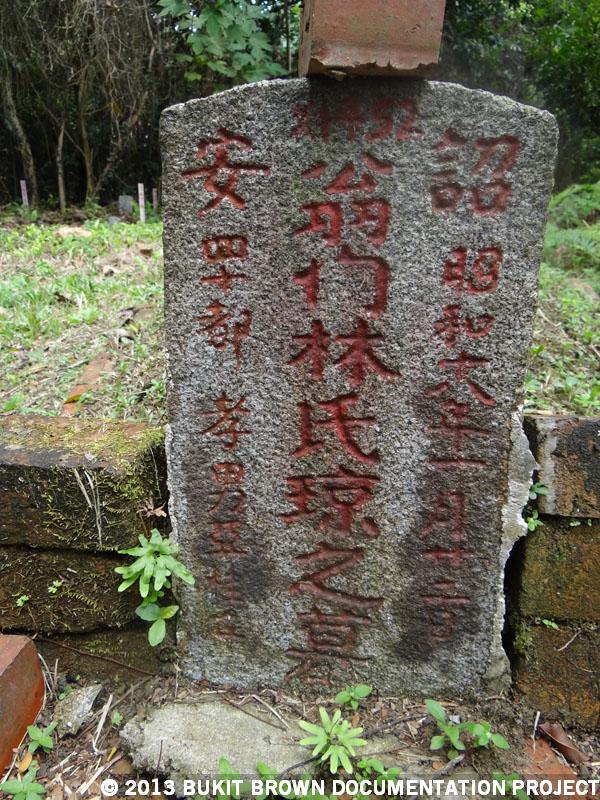 詔安
昭和十八年一月廿二日
翁門林氏琼之墓
四十都 孝男亚
© 2013 BUKIT BROWN DOCUMENTATION PROJECT